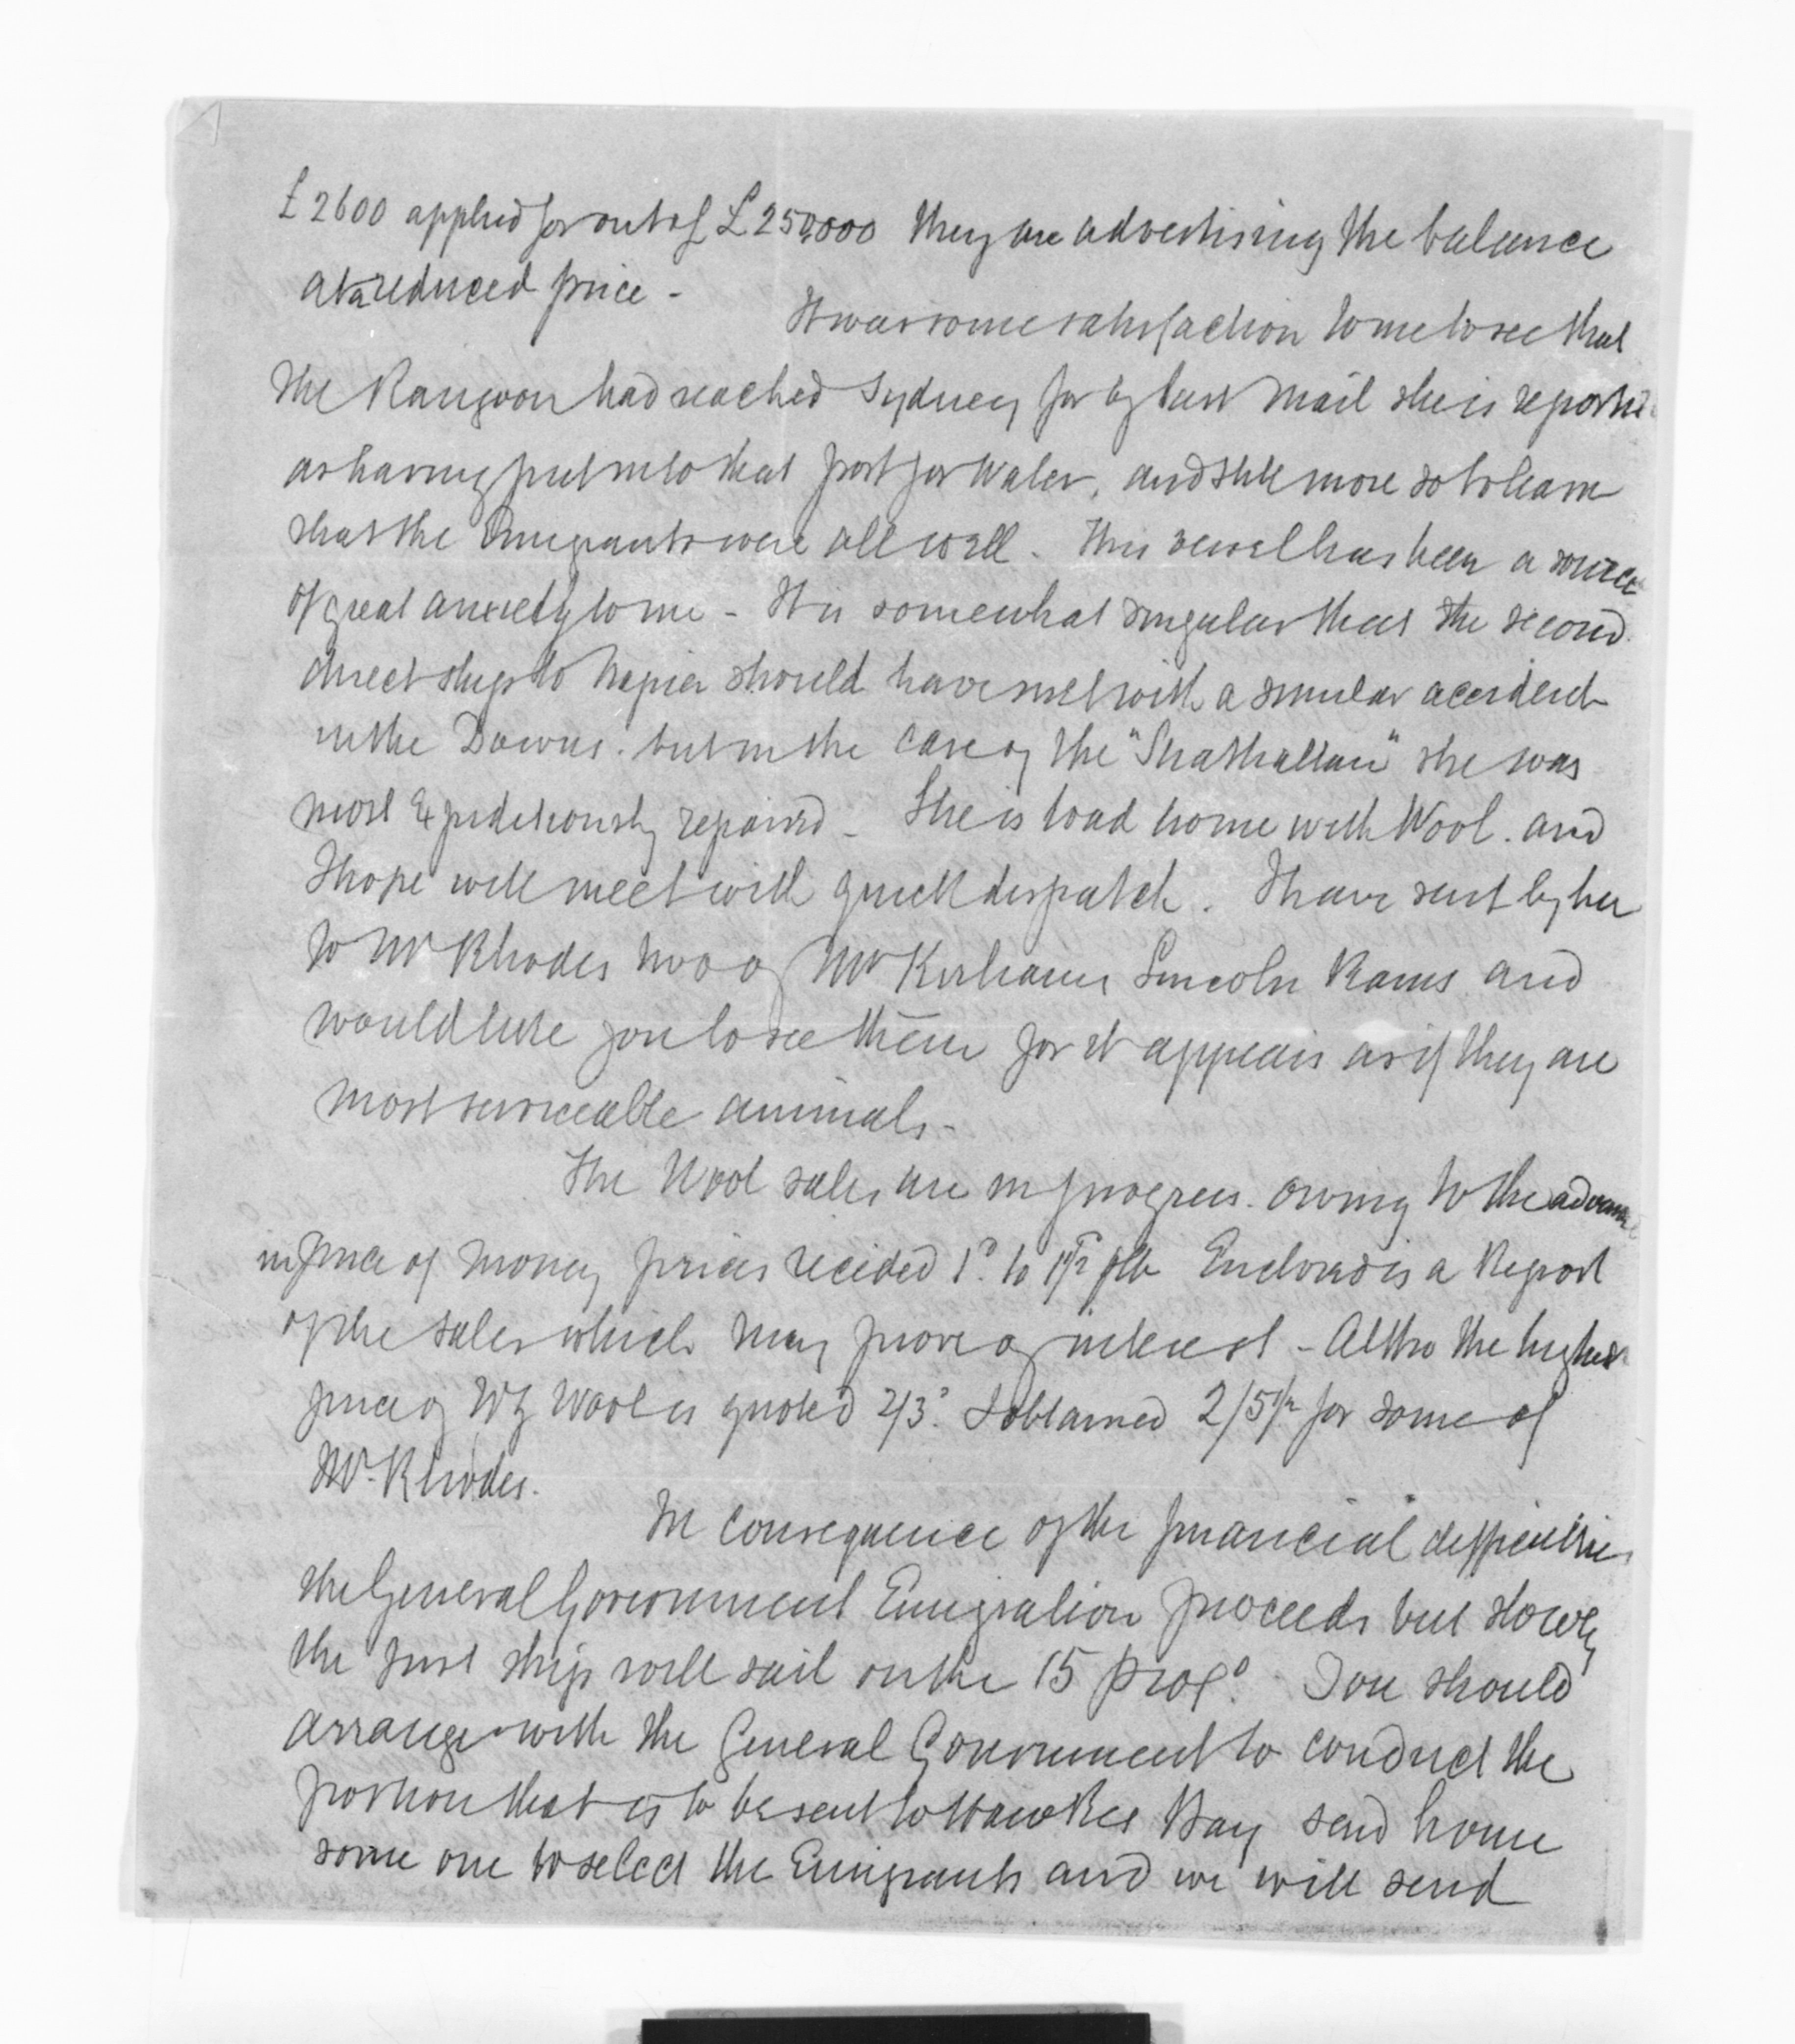 £2600 applied for out of £250,000 they are advertising the balance
at a reduced price -
It was some satisfaction to me to see that
the Rangoon had reached Sydney for by last Mail she is reported
as having put into that port for Water, and still more so to learn
that the Emigrants were all well - This vessel has been a source
of great anxiety to me - It is somewhat singular that the second
direct ship to Napier should have met with a similar accident
in the Downs. but in the case of the "Strathallan" she was
most Expeditiously repaired - She is to load home with Wool. and
I hope will meet with quick dispatch. I have sent by her
to Mr Rhodes two of Mr Kirkhams Lincoln Rams and
would like you to see them for it appears as if they are
most serviceable animals -
The Wool sales are in progress. owing to the advance
in price of Money prices receded 1d to 1½ plb Enclosed is a Report
of the sales which may prove of interest - Altho the highest
price of NZ Wool is quoted 2/3d I obtained 2/5½ for some of
Mr Rhodes.
In consequence of the financial difficulties
the General Government Emigration proceeds but slowly
the first ship will sail on the 15 proxo. You should
arrange with the General Government to conduct the
portion that is to be sent to Hawkes Bay send home
some one to select the Emigrants and we will send